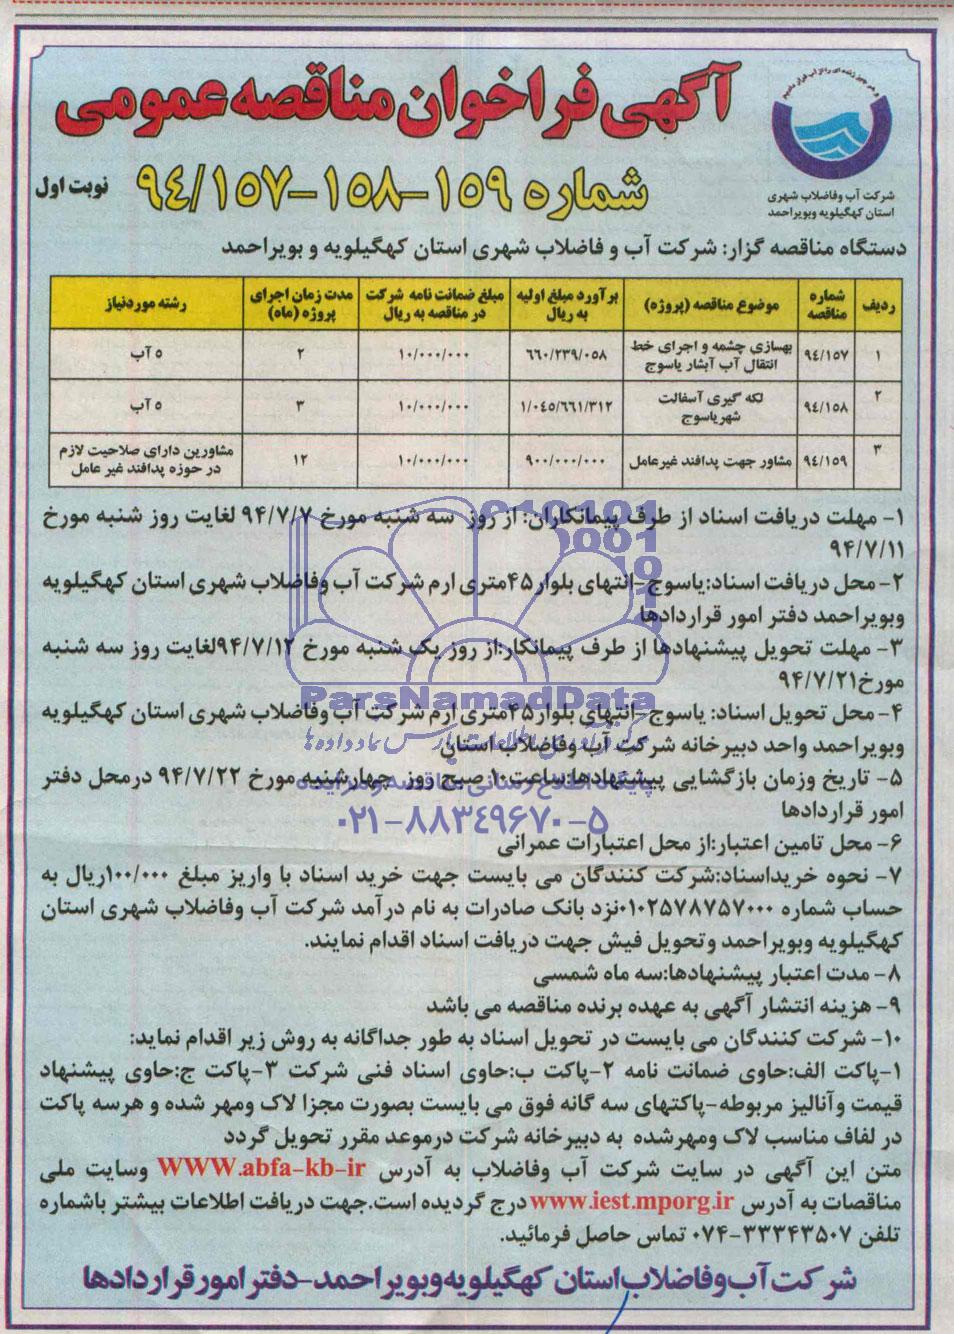 آگهی فراخوان مناقصه عمومی
شماره ۱۵۹-۱۵۸-۹۴/۱۵۷
نوبت اول
شرکت آب و فاضلاب شهری
استان کهگیلویه وبویراحمد
دستگاه مناقصه گزار: شرکت آب و فاضلاب شهری استان کهگیلویه و بویراحمد
ردیف | شماره مناقصه | موضوع مناقصه (پروژه) | برآورد مبلغ اولیه به ریال | مبلغ ضمانت نامه شرکت در مناقصه به ریال | مدت زمان اجرای پروژه (ماه) | رشته موردنیاز
۱ | ۹٤/۱۵۷ | بهسازی چشمه و اجرای خط انتقال آب آبشار یاسوج | ٦٦۰/۲۳۹/۰۵۸ | ۱۰/۰۰۰/۰۰۰ | ۲ | ۵ آب
۲ | ۹٤/۱۵۸ | لکه گیری آسفالت شهریاسوج | ۱/۰٤۵/٦٦۱/۳۱۲ | ۱۰/۰۰۰/۰۰۰ | ۳ | ۵ آب
۳ | ۹٤/۱۵۹ | مشاور جهت پدافند غیرعامل | ۹۰۰/۰۰۰/۰۰۰ | ۱۰/۰۰۰/۰۰۰ | ۱۲ | مشاورین دارای صلاحیت لازم در حوزه پدافند غیر عامل
۱- مهلت دریافت اسناد از طرف پیمانکاران: از روز سه شنبه مورخ ۹۴/۷/۷ لغایت روز شنبه مورخ
۹۴/۷/۱۱
۲- محل دریافت اسناد:یاسوج-انتهای بلوار۴۵متری ارم شرکت آب وفاضلاب شهری استان کهگیلویه
وبویراحمد دفتر امور قراردادها
۳- مهلت تحویل پیشنهادها از طرف پیمانکار:از روز یک شنبه مورخ ۹۴/۷/۱۲لغایت روز سه شنبه
مورخ۹۴/۷/۲۱
ParsNamadData
۴- محل تحویل اسناد: یاسوج-انتهای بلوار۴۵متری ارم شرکت آب وفاضلاب شهری استان کهگیلویه
وبویراحمد واحد دبیرخانه شرکت آب وفاضلاب استان
۵- تاریخ وزمان بازگشایی پیشنهادها:ساعت۱۰صبح روز چهارشنبه مورخ ۹۴/۷/۲۲ درمحل دفتر
پایگاه اطلاع رسانی مناقصه و مزایده
امور قراردادها
۰۲۱-۸۸۳۴۹۶۷۰-۵
۶- محل تامین اعتبار:از محل اعتبارات عمرانی
۷- نحوه خریداسناد:شرکت کنندگان می بایست جهت خرید اسناد با واریز مبلغ ۱۰۰/۰۰۰ریال به
حساب شماره ۰۱۰۲۵۷۸۷۵۷۰۰۰نزد بانک صادرات به نام درآمد شرکت آب وفاضلاب شهری استان
کهگیلویه وبویراحمد وتحویل فیش جهت دریافت اسناد اقدام نمایند.
۸- مدت اعتبار پیشنهادها:سه ماه شمسی
۹- هزینه انتشار آگهی به عهده برنده مناقصه می باشد
۱۰- شرکت کنندگان می بایست در تحویل اسناد به طور جداگانه به روش زیر اقدام نماید:
۱-پاکت الف:حاوی ضمانت نامه ۲-پاکت ب:حاوی اسناد فنی شرکت ۳-پاکت ج:حاوی پیشنهاد
قیمت وآنالیز مربوطه-پاکتهای سه گانه فوق می بایست بصورت مجزا لاک ومهر شده و هرسه پاکت
در لفاف مناسب لاک ومهرشده به دبیرخانه شرکت درموعد مقرر تحویل گردد
متن این آگهی در سایت شرکت آب وفاضلاب به آدرس WWW.abfa-kb-ir وسایت ملی
مناقصات به آدرس www.iest.mporg.ir درج گردیده است.جهت دریافت اطلاعات بیشتر باشماره
تلفن ۳۳۳۴۳۵۰۷-۰۷۴ تماس حاصل فرمائید.
شرکت آب وفاضلاب استان کهگیلویه وبویراحمد-دفتر امور قراردادها